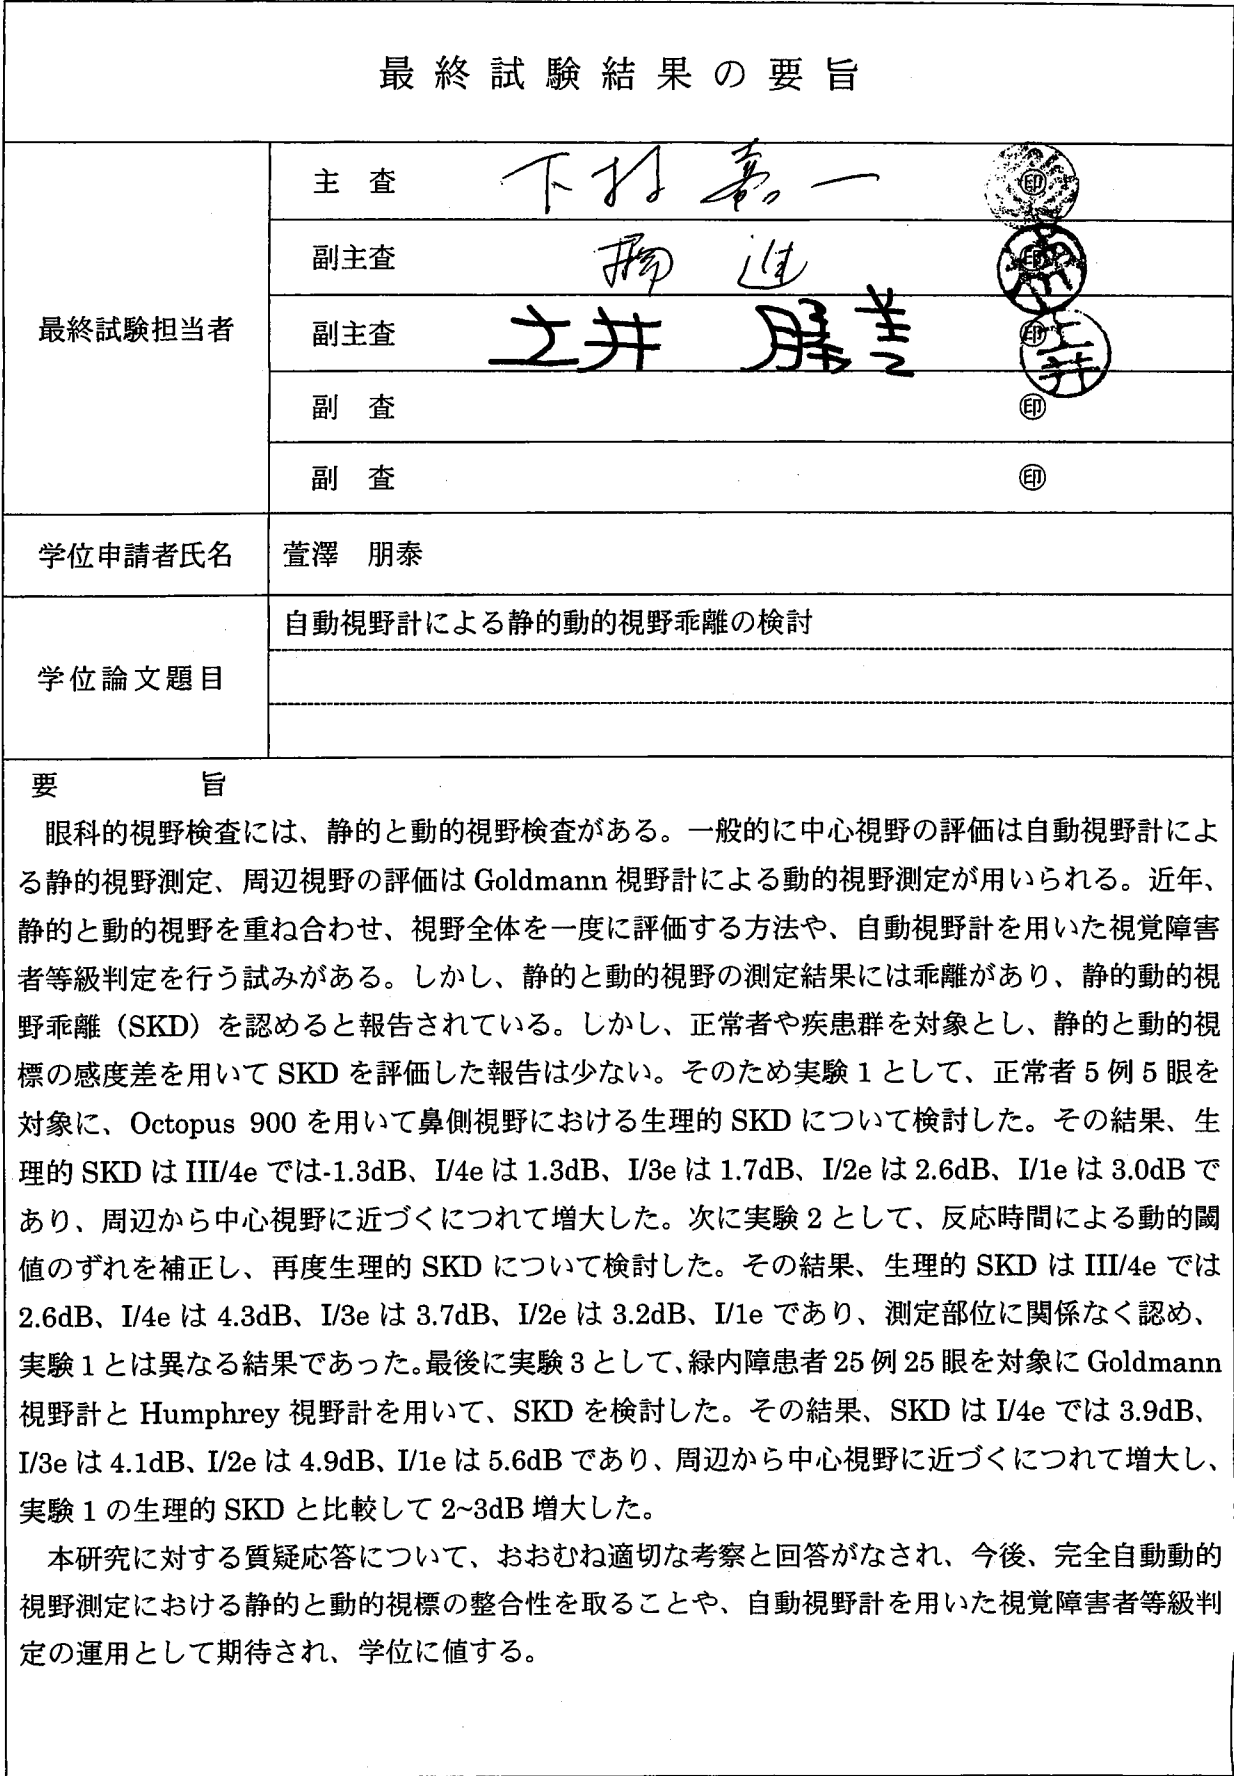 最終試験結果の要旨
最終試験担当者
主査 下村 嘉一 ㊞
副主査 楠 進 ㊞
副主査 土井 勝美 ㊞
副査 ㊞
副査 ㊞
学位申請者氏名 萱澤 朋泰
学位論文題目 自動視野計による静的動的視野乖離の検討
要 旨
眼科的視野検査には、静的と動的視野検査がある。一般的に中心視野の評価は自動視野計によ
る静的視野測定、周辺視野の評価は Goldmann 視野計による動的視野測定が用いられる。近年、
静的と動的視野を重ね合わせ、視野全体を一度に評価する方法や、自動視野計を用いた視覚障害
者等級判定を行う試みがある。しかし、静的と動的視野の測定結果には乖離があり、静的動的視
野乖離（SKD）を認めると報告されている。しかし、正常者や疾患群を対象とし、静的と動的視
標の感度差を用いて SKD を評価した報告は少ない。そのため実験 1 として、正常者 5 例 5 眼を
対象に、Octopus 900 を用いて鼻側視野における生理的 SKD について検討した。その結果、生
理的 SKD は III/4e では-1.3dB、I/4e は 1.3dB、I/3e は 1.7dB、I/2e は 2.6dB、I/1e は 3.0dB で
あり、周辺から中心視野に近づくにつれて増大した。次に実験 2 として、反応時間による動的閾
値のずれを補正し、再度生理的 SKD について検討した。その結果、生理的 SKD は III/4e では
2.6dB、I/4e は 4.3dB、I/3e は 3.7dB、I/2e は 3.2dB、I/1e であり、測定部位に関係なく認め、
実験 1 とは異なる結果であった。最後に実験 3 として、緑内障患者 25 例 25 眼を対象に Goldmann
視野計と Humphrey 視野計を用いて、SKD を検討した。その結果、SKD は I/4e では 3.9dB、
I/3e は 4.1dB、I/2e は 4.9dB、I/1e は 5.6dB であり、周辺から中心視野に近づくにつれて増大し、
実験 1 の生理的 SKD と比較して 2~3dB 増大した。
本研究に対する質疑応答について、おおむね適切な考察と回答がなされ、今後、完全自動動的
視野測定における静的と動的視標の整合性を取ることや、自動視野計を用いた視覚障害者等級判
定の運用として期待され、学位に値する。